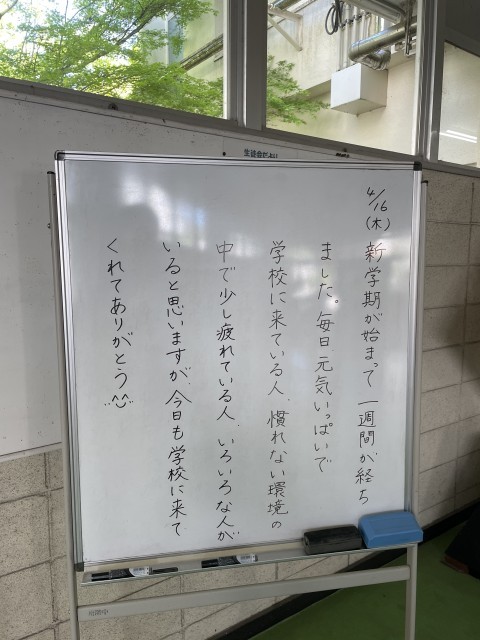 4/16(木)
新学期が始まって一週間が経ち
ました。毎日元気いっぱいで
学校に来ている人、慣れない環境の
中で少し疲れている人、いろいろな人が
いると思いますが、今日も学校に来て
くれてありがとう